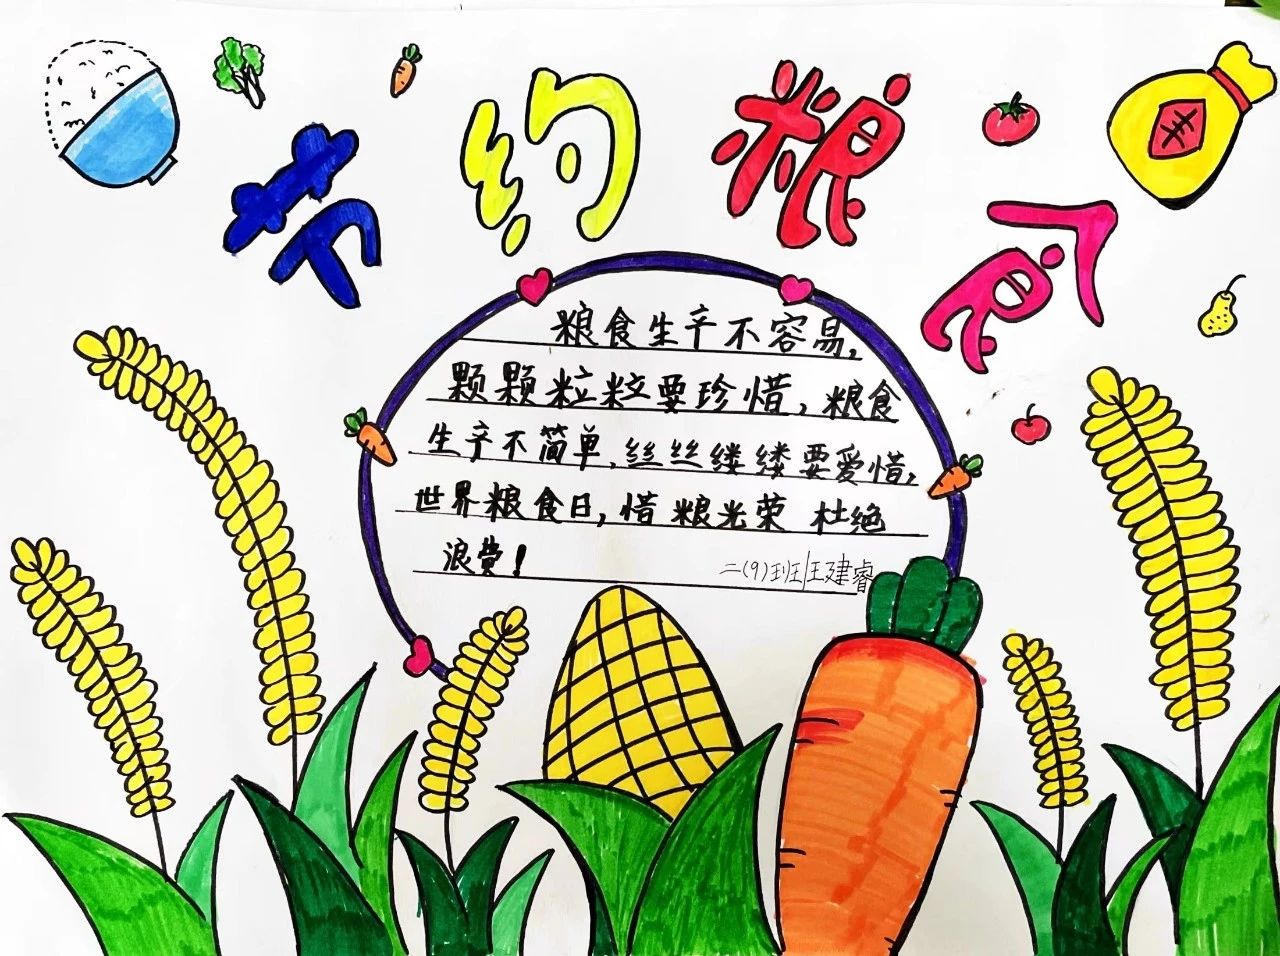 节约粮食
米
粮食生产不容易,
颗颗粒粒要珍惜,粮食
生产不简单,丝丝缕缕要爱惜,
世界粮食日,惜粮光荣 杜绝
浪费!
二(9)班 王建睿